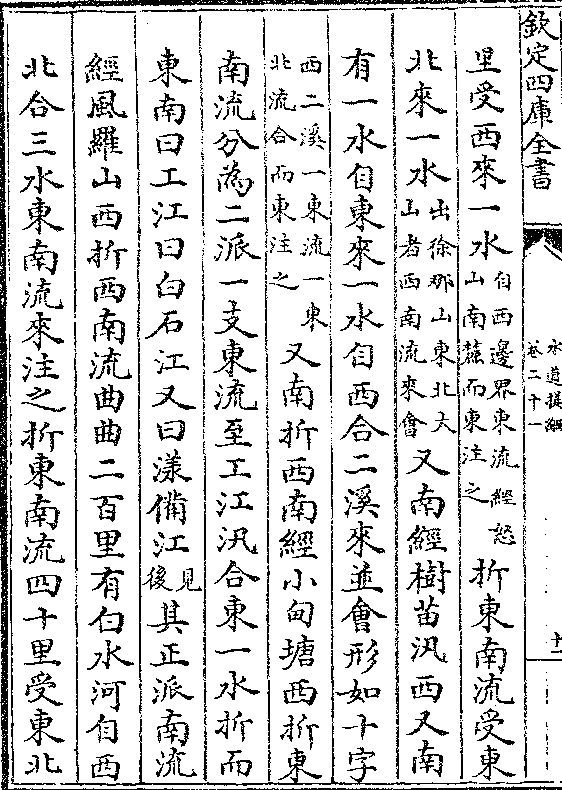 欽定四庫全書
水道提綱
卷二十一
里受西來一水自西邊界東流經怒山南麓而東注之折東南流受東
北來一水出徐那山東北大山者西南流來會又南經樹苗汛西又南
有一水自東來一水自西合二溪來並會形如十字
西二溪一東流一東北流合而東注之又南折西南經小甸塘西折東
南流分為二派一支東流至工江汛合東一水折而
東南曰工江曰白石江又曰漾備江見後其正派南流
經風羅山西折西南流曲曲二百里有白水河自西
北合三水東南流來注之折東南流四十里受東北